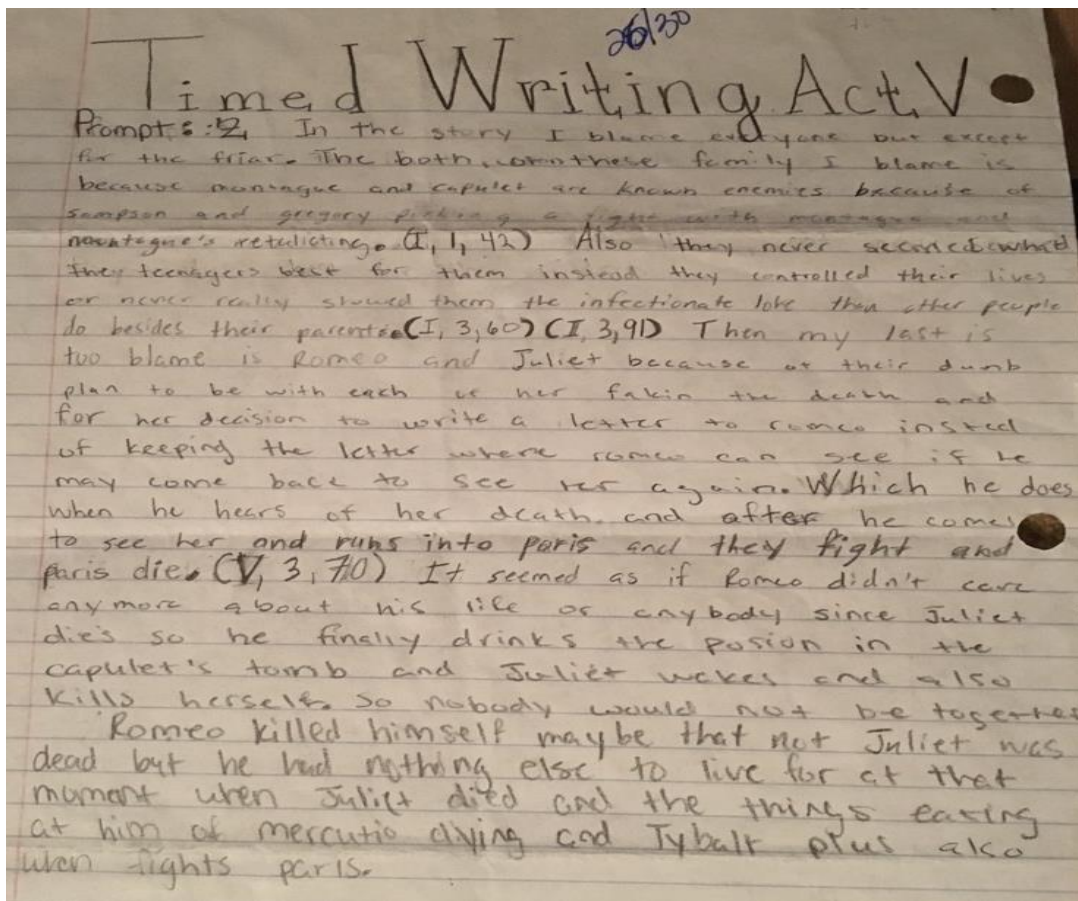 26/30
Timed Writing Act V
Prompt: 2, In the story I blame everyone but except
for the friar. The both, family I blame is
because montague and capulet are known enemies because of
sampson and gregory picking a fight with montague and
mountague's retalicting. (I, 1, 42) Also they never
they teenagers best for them instead they controlled their lives
or never really showed them the infectionate love then other people
do besides their parents. (I, 3, 60) (I, 3, 91) Then my last is
two blame is Romeo and Juliet because of their dumb
plan to be with each her fakin the death and
for her decision to write a letter to romeo insted
of keeping the letter where romeo can see if he
may come back to see her again. Which he does
when he hears of her death. and after he comes
to see her and runs into paris and they fight and
paris die. (V, 3, 70) It seemed as if Romeo didn't care
anymore about his life or anybody since Juliet
die's so he finally drinks the posion in the
capulet's tomb and Juliet wakes and also
kills herself. So nobody would not be together
Romeo killed himself maybe that not Juliet was
dead but he had nothing else to live for at that
mumant when Juliet died and the things eating
at him of mercutio dying and Tybalt plus also
when fights paris.